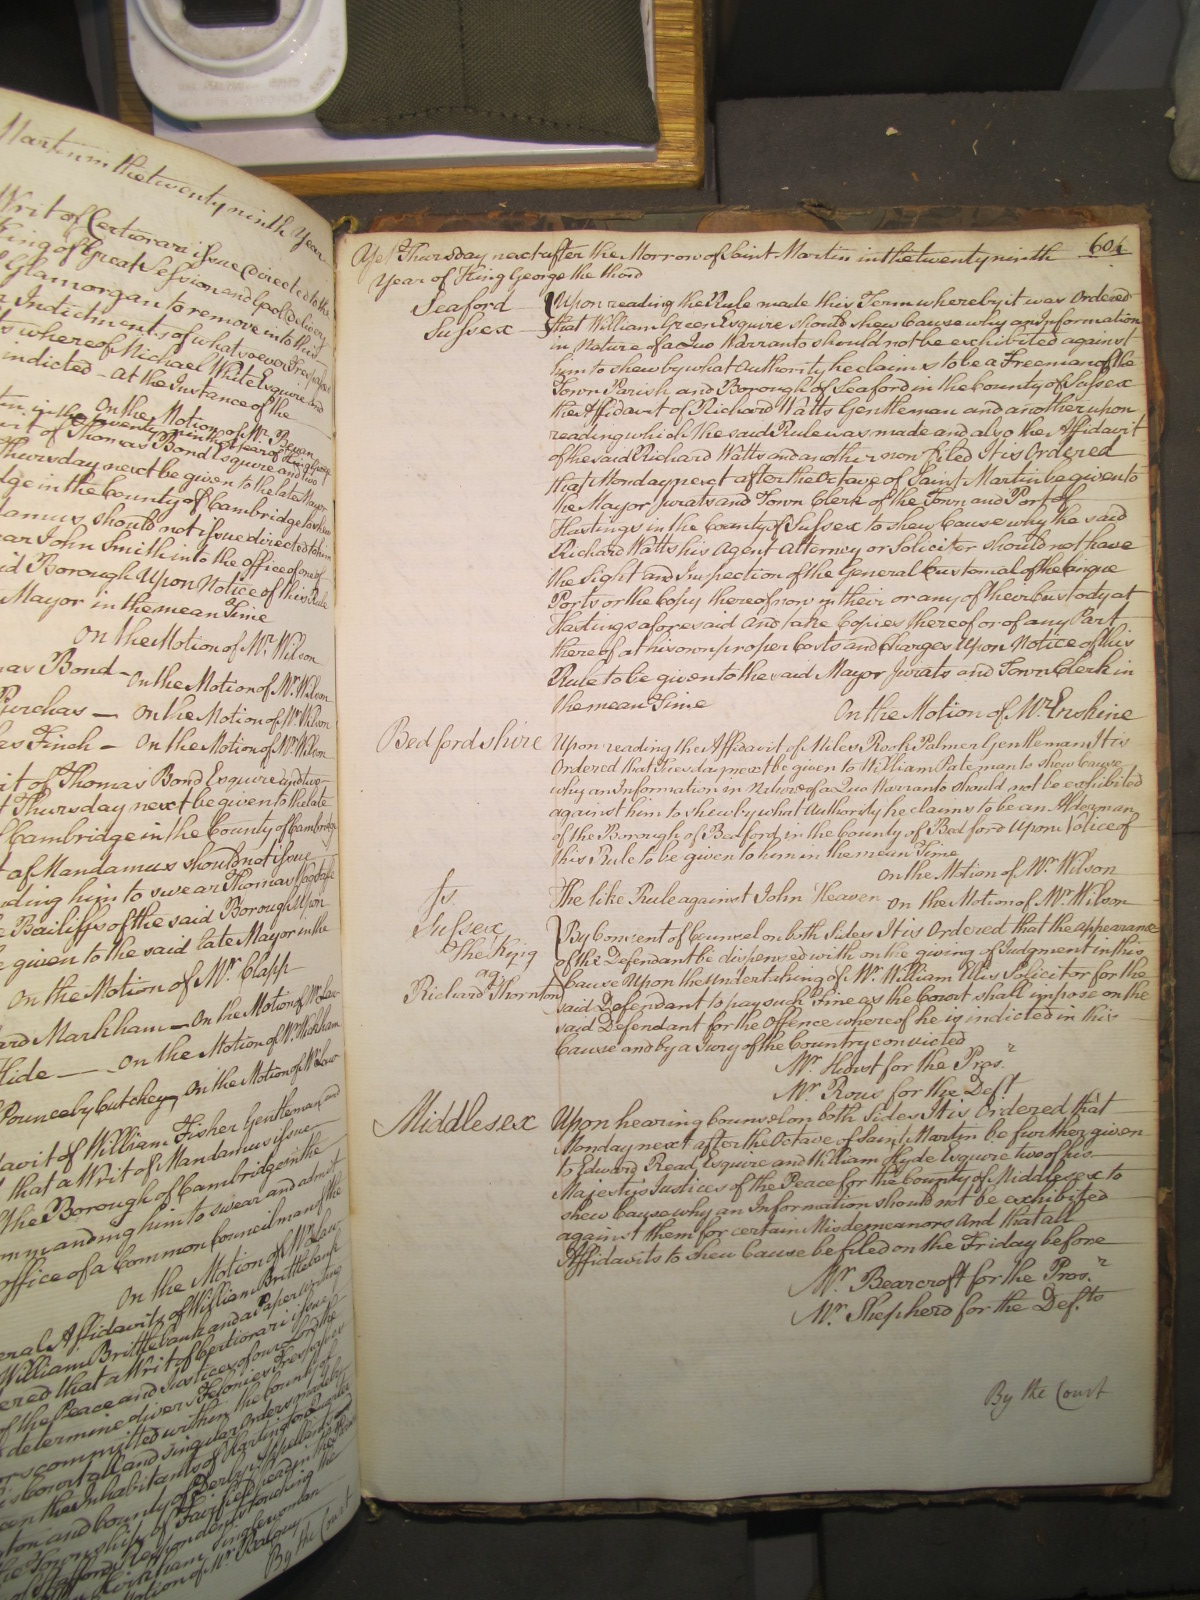 Martin in the twenty ninth Year
Writ of Certiorari issue directed to the
King of Great Session and Gaol delivery
Glamorgan to remove into this
Indictments of whatsoever Trespasses
whereof Michael White Esquire and
indicted - At the Instance of the
On the Motion of Mr. Bevan
in the twenty ninth Year of King George
of Thomas Bond Esquire and two
Thursday next be given to the late Mayor
in the County of Cambridge to shew
should not issue directed to him
John Smith into the office of one of
Borough Upon Notice of this Rule
Mayor in the mean Time
On the Motion of Mr. Wilson
Bond - On the Motion of Mr. Wilson
Purchas - On the Motion of Mr. Wilson
Finch - On the Motion of Mr. Wilson
of Thomas Bond Esquire and two
Thursday next be given to the late
Cambridge in the County of Cambridge
of Mandamus should not issue
him to swear Thomas
Bailiffs of the said Borough Upon
given to the said late Mayor in the
On the Motion of Mr. Clapp
Markham - On the Motion of Mr. Law
Hide - On the Motion of Mr.
Pounceby Cutchey On the Motion of Mr. Law
of William Fisher Gentleman and
that a Writ of Mandamus issue
the Borough of Cambridge in the
commanding him to swear and admit
office of a Common Councilman of the
On the Motion of Mr. Law
Affidavits of William Brittlebank
William Brittlebank and a Paper writing
that a Writ of Certiorari issue
of the Peace and Justices of our Lord the
determine divers Felonies Trespasses
committed within the County of
Court all and singular Orders made
the Inhabitants of Hartington
and County of Derby Appellants
Township of Fairfield
Respondents touching the
Singlewoman
Motion of Mr.
By the Court
604
Yet Thursday next after the Morrow of Saint Martin in the twenty ninth
Year of King George the third
Seaford
Sussex
Upon reading the Rule made this Term whereby it was Ordered
that William Green Esquire should shew Cause why an Information
in Nature of a Quo Warranto should not be exhibited against
him to shew by what Authority he claims to be a Freeman of the
Town Parish and Borough of Seaford in the County of Sussex
the Affidavit of Richard Watts Gentleman and another upon
reading which the said Rule was made and also the Affidavit
of the said Richard Watts and another now filed It is Ordered
that Monday next after the Octave of Saint Martin be given to
the Mayor Jurats and Town Clerk of the Town and Port of
Hastings in the County of Sussex to shew Cause why the said
Richard Watts his Agent Attorney or Soliciter should not have
the Sight and Inspection of the General Customal of the Cinque
Ports or the Copy thereof now in their or any of their Custody at
Hastings aforesaid And take Copies thereof or of any Part
thereof at his own proper Costs and Charges Upon Notice of this
Rule to be given to the said Mayor Jurats and Town Clerk in
the mean Time
On the Motion of Mr. Erskine
Bedfordshire
Upon reading the Affidavit of Miles Rook Palmer Gentleman It is
Ordered that Tuesday next be given to William Pateman to shew Cause
why an Information in Nature of a Quo Warranto should not be exhibited
against him to shew by what Authority he claims to be an Alderman
of the Borough of Bedford in the County of Bedford Upon Notice of
this Rule to be given to him in the mean Time
On the Motion of Mr. Wilson
Js.
The like Rule against John Heaven On the Motion of Mr. Wilson
Sussex
The King
agt.
Richard Thornton
By Consent of Counsel on both Sides It is Ordered that the appearance
of the Defendant be dispensed with on the giving of Judgment in this
Cause Upon the Undertaking of Mr. William Ellis Solicitor for the
said Defendant to pay such Fine as the Court shall impose on the
said Defendant for the Offence whereof he is indicted in this
Cause and by a Jury of the Country convicted
Mr. Hurst for the Pros.r
Mr. Rous for the Deft
Middlesex
Upon hearing Counsel on both Sides It is Ordered that
Monday next after the Octave of Saint Martin be further given
to Edward Read Esquire and William Hyde Esquire two of his
Majestys Justices of the Peace for the County of Middlesex to
shew Cause why an Information should not be exhibited
against them for certain Misdemeanors And that all
Affidavits to shew Cause be filed on the Friday before
Mr. Bearcroft for the Pros.r
Mr. Shepherd for the Def.ts
By the Court